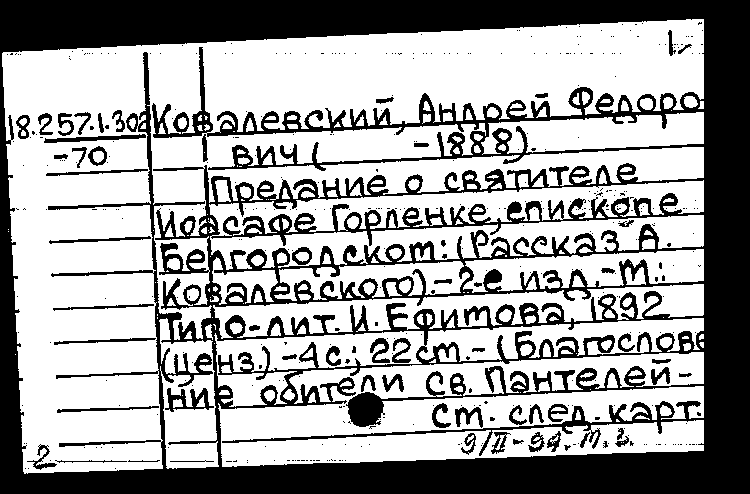 1.
18.257.1.302 Ковалевский, Андрей Федоро-
-70 вич ( -1888).
Предание о святителе
Иоасафе Горленке, епископе
Белгородском: (Рассказ А.
Ковалевского).-2-е изд.-М.:
Типо-лит. И. Ефимова, 1892
(ценз.).-4с.; 22см.-(Благослове
ние обители св. Пантелей-
см. след. карт.
2 9/II-94.